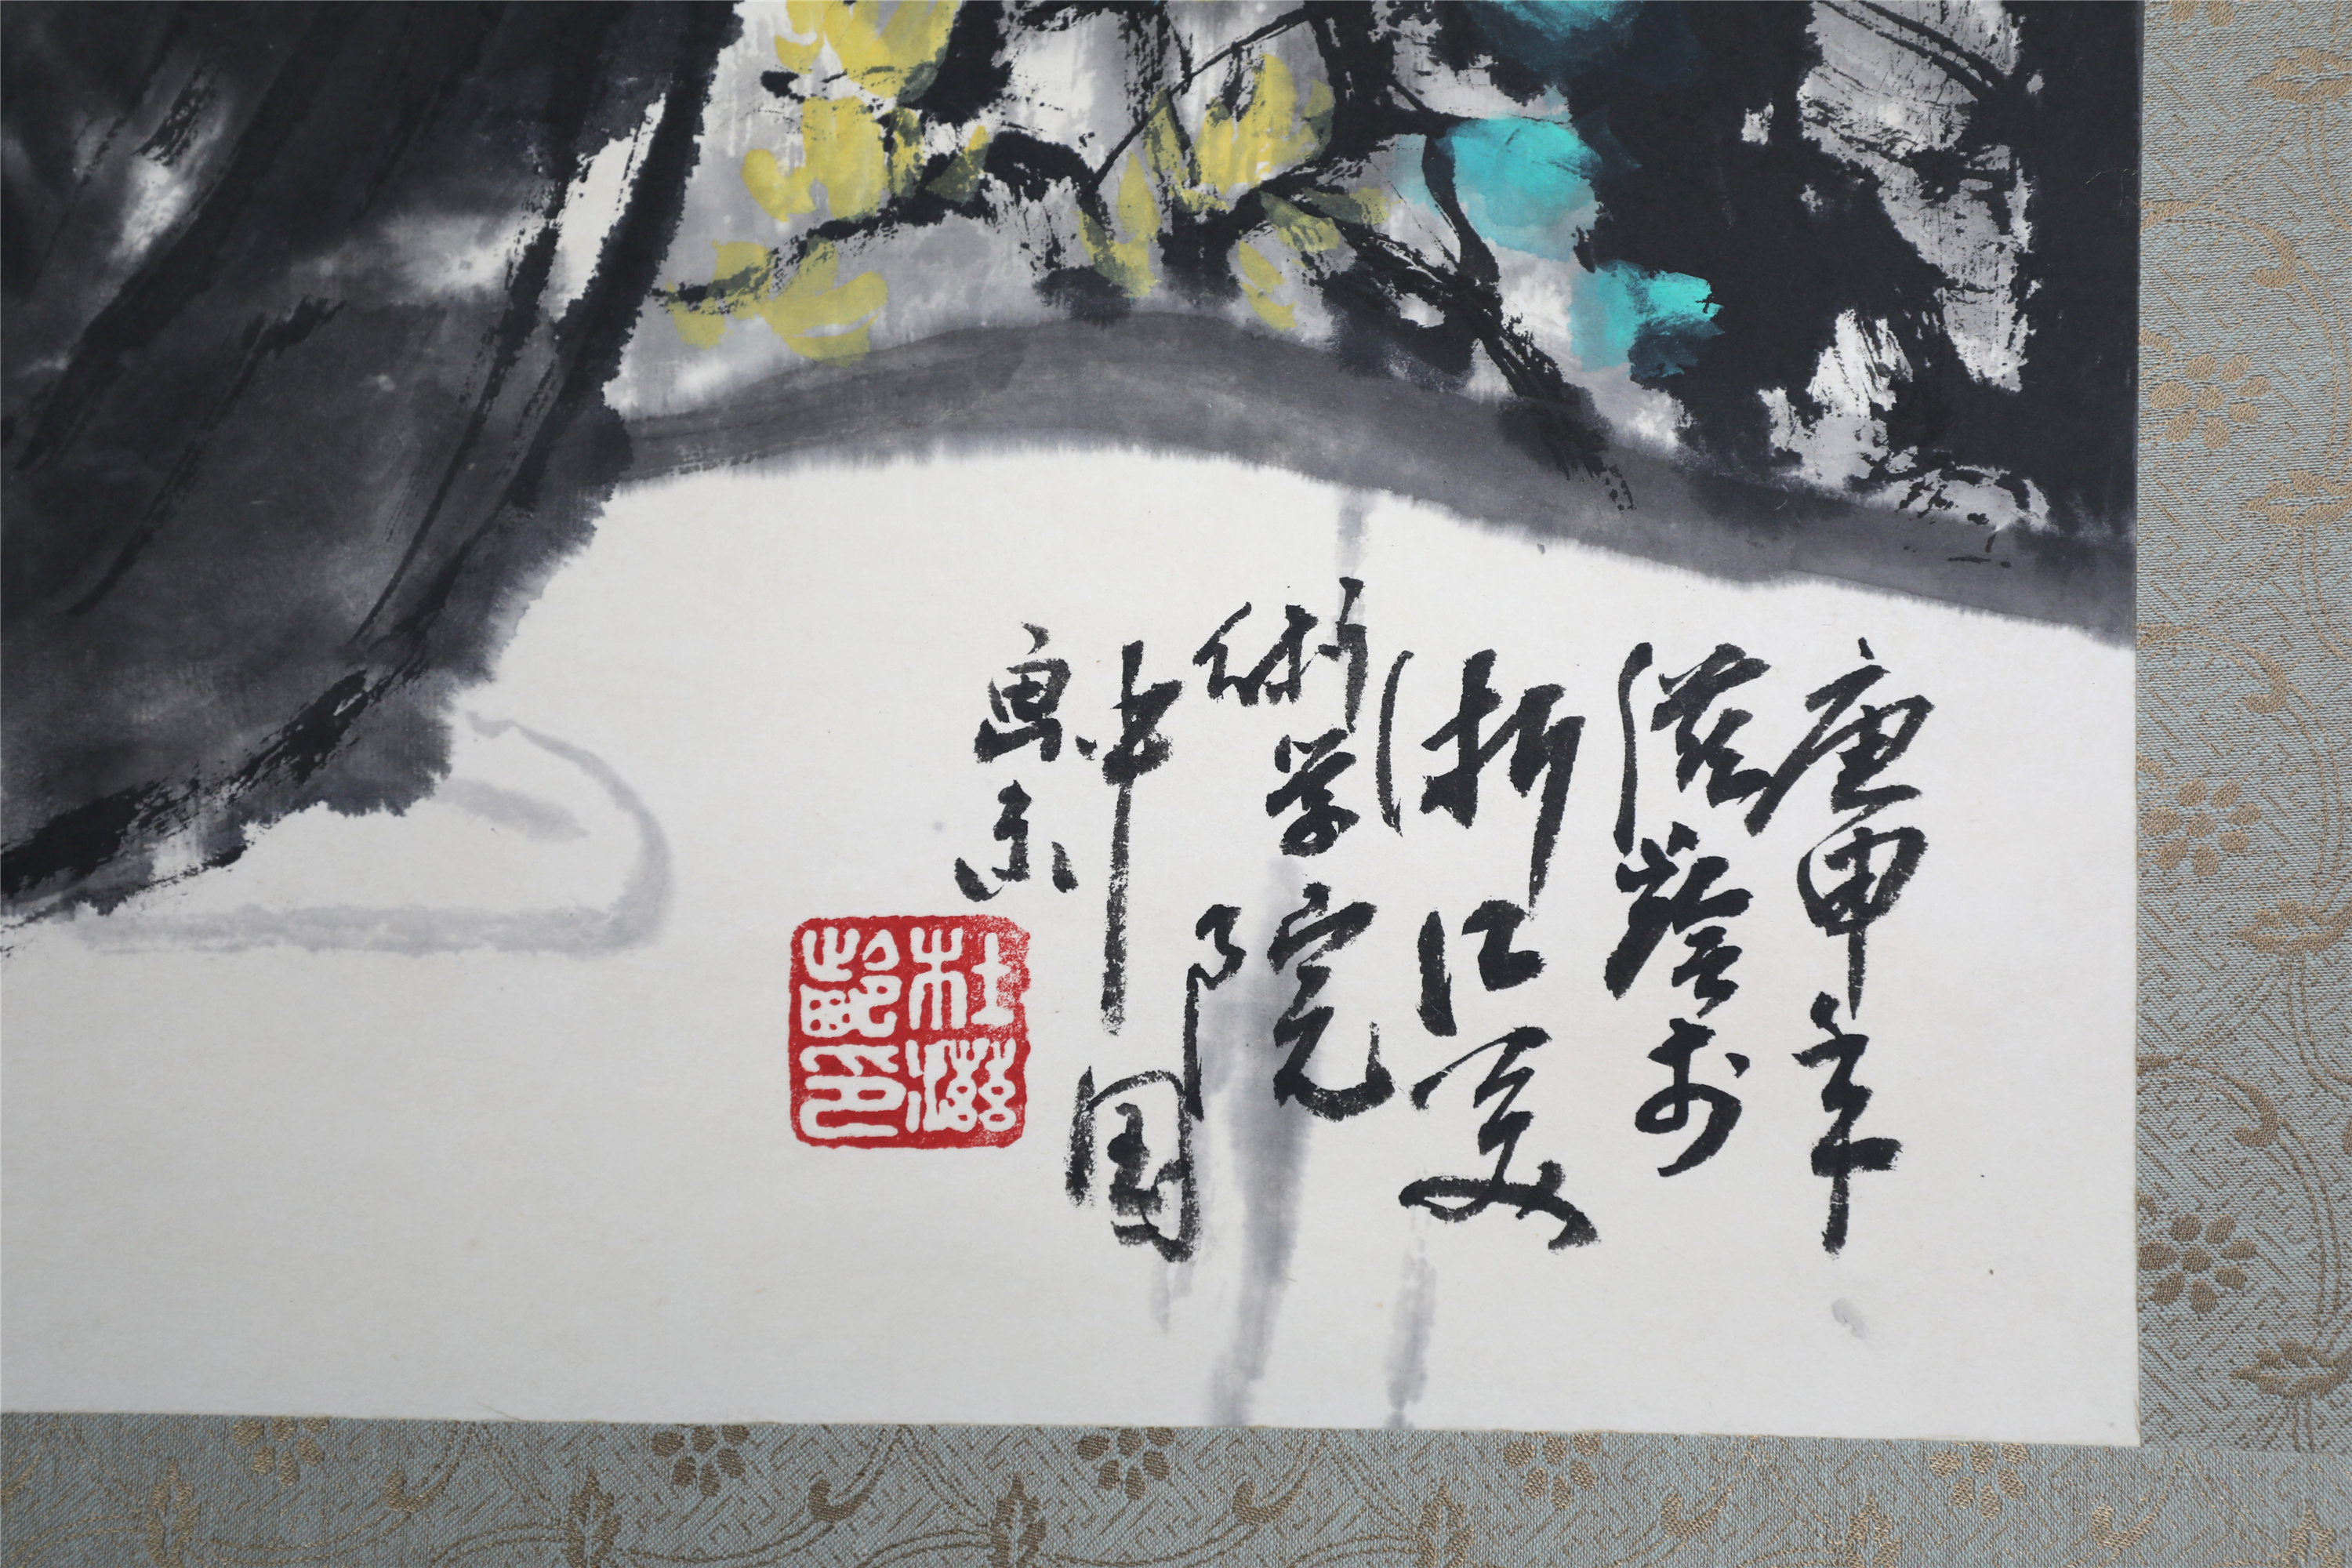 庚申年
滋龄於
浙江美
術学院
中国
画系
杜滋
齡印